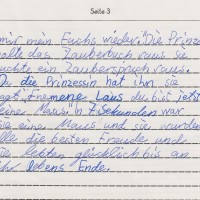 Seite 3
mir mein Fuchs wieder." Die Prinze
holte das Zauberbuch raus sie
suchte ein Zauberspruch raus.
die Prinzessin hat ihn sie
sagt "Fremene Laus du bist jetzt
eine Maus" in 7 Sekunden war
sie eine Maus und sie wurden
alle die besten Freunde und
sie lebten glücklich bis an
ihr lebens Ende.